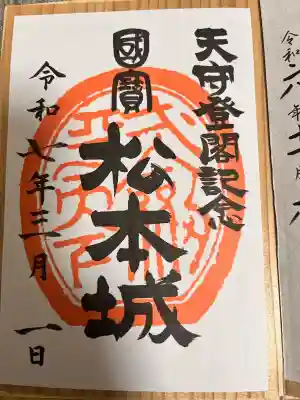 天守登閣記念
國寶
松本城
令和七年三月一日
令和